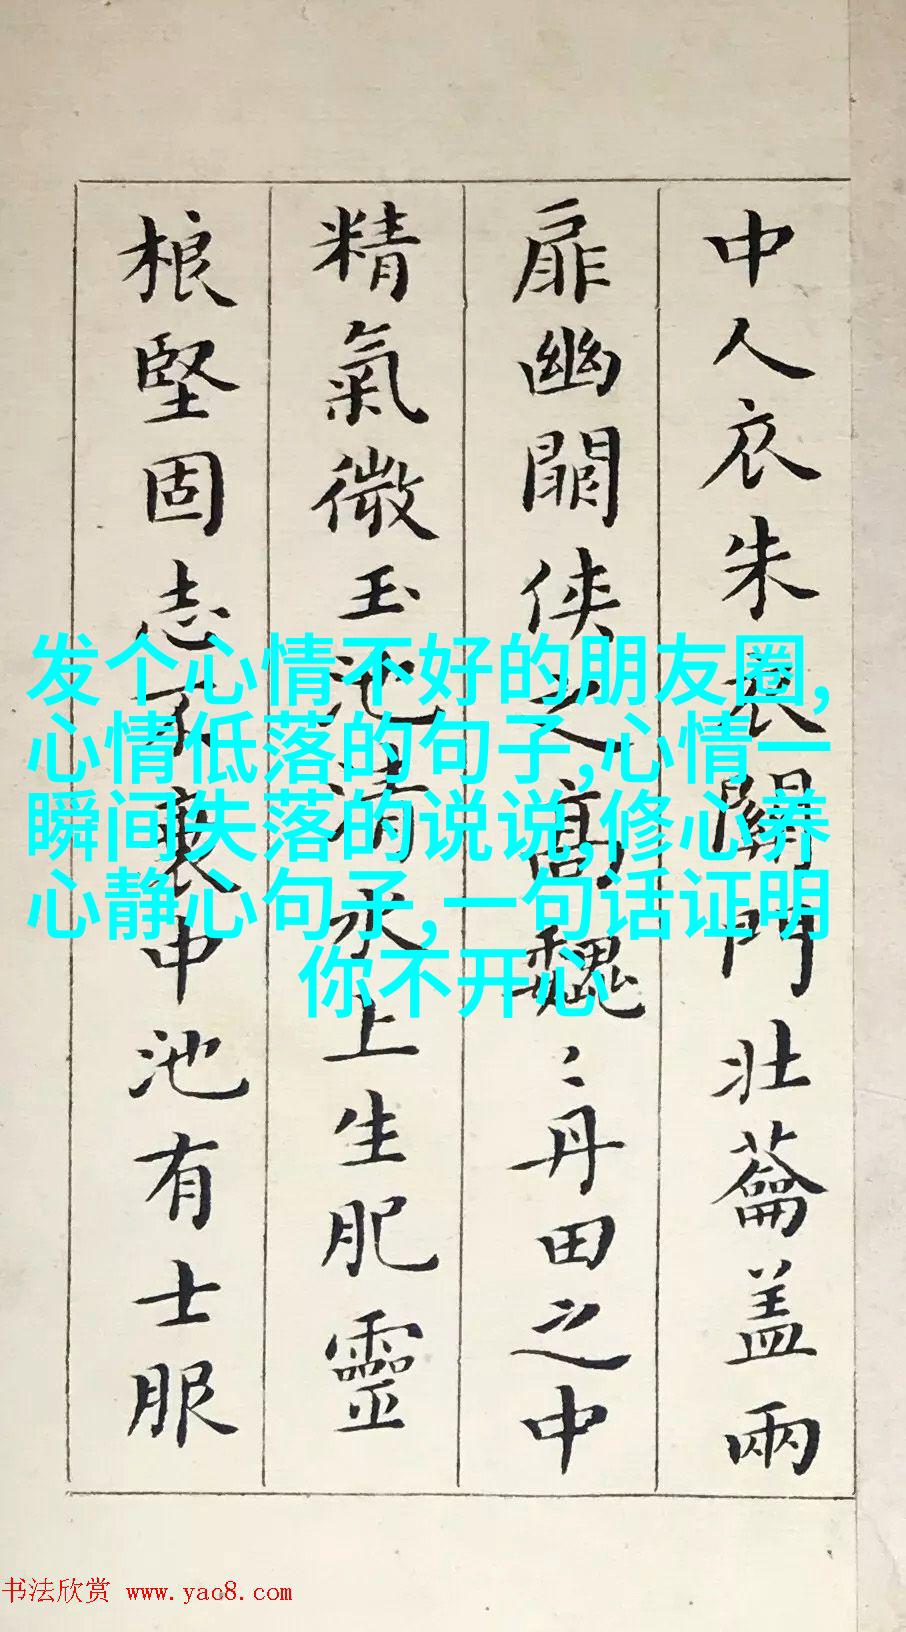 中人衣朱衣關門壯蘥盖兩
扉幽關侠之高魏〻丹田之中
精氣微玉池清水上生肥靈
根堅固志不衰中池有士服
发个心情不好的朋友圈,
心情低落的句子,心情一
瞬间失落的说说,修心养
心静心句子,一句话证明
你不开心
书法欣赏 www.yac8.com